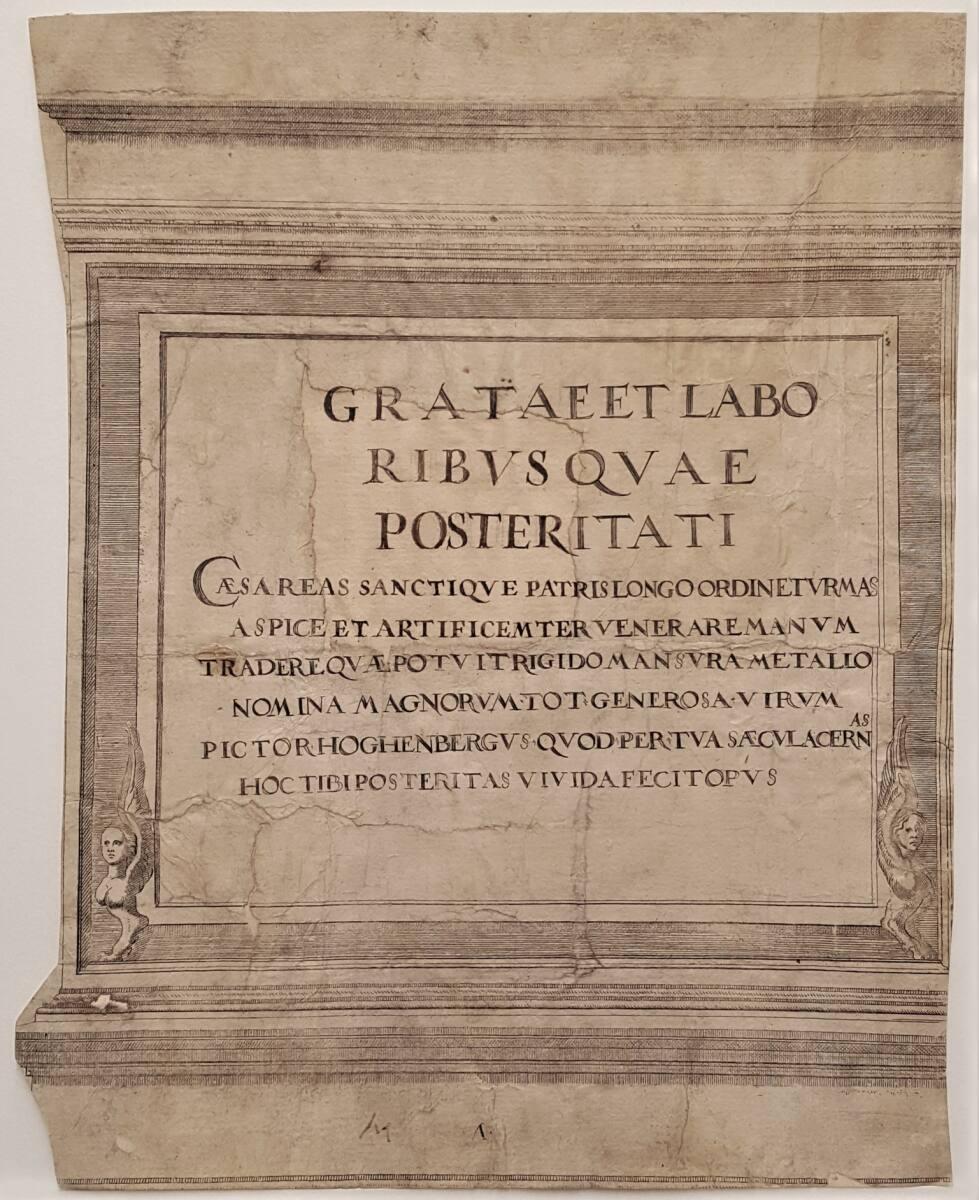 GRATAE ET LABO
RIBVSQVAE
POSTERITATI
CÆSAREAS SANCTIQVE PATRIS LONGO ORDINE TVRMAS
ASPICE ET ARTIFICEM TER VENERARE MANVM
TRADERE QVÆ POTVIT RIGIDO MANSVRA METALLO
NOMINA MAGNORVM·TOT·GENEROSA·VIRVM
PICTOR HOGHENBERGVS·QVOD·PER TVA SÆCVLA CERNAS
HOC TIBI POSTERITAS VIVIDA FECIT OPVS